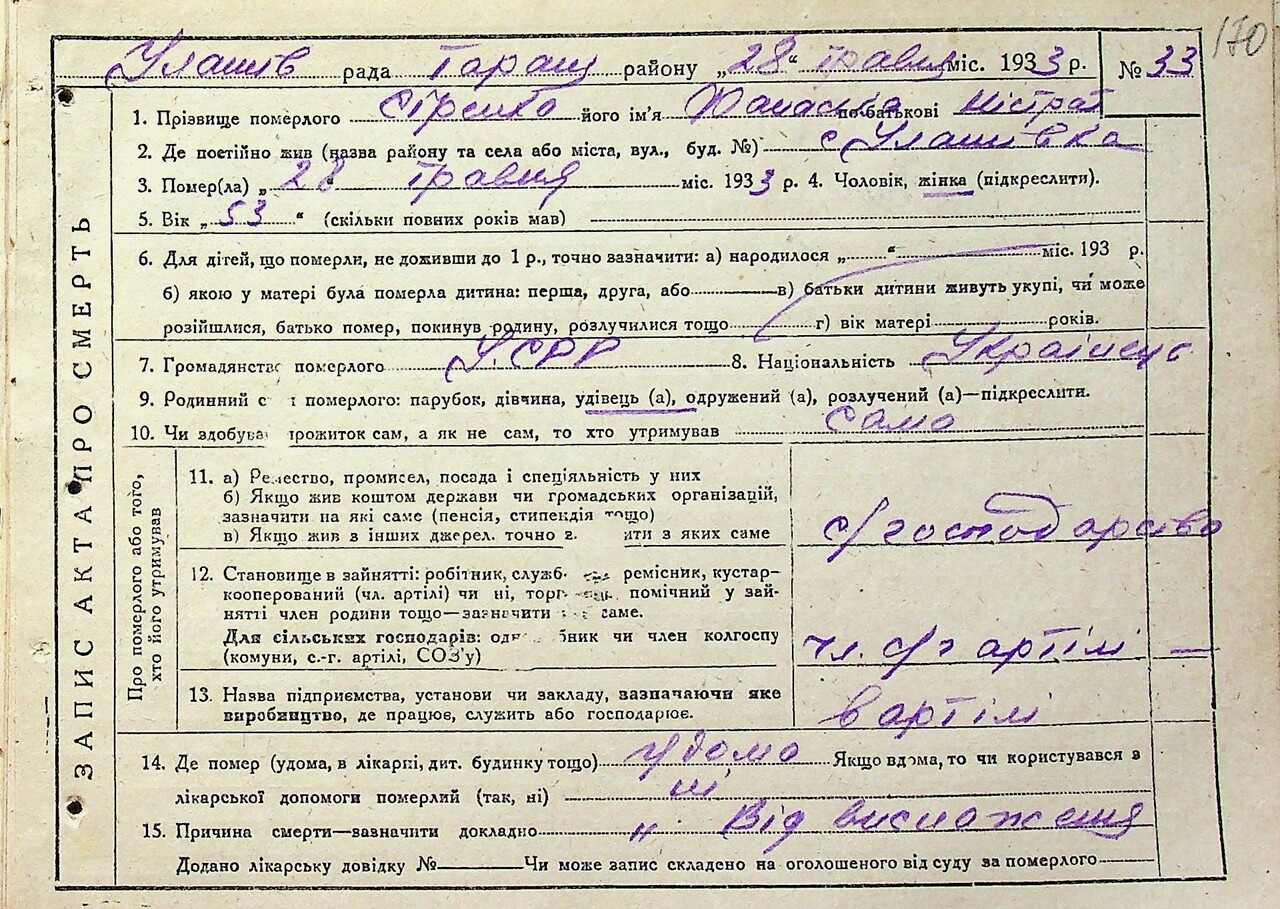 170
Улашів рада Таращ району „28“ травня міс. 1933 р. № 33
1. Прізвище померлого його ім'я Панаска по батькові Містрат
2. Де постійно жив (назва району та села або міста, вул., буд. №) с Улашівка
3. Помер(ла) „28 травня міс. 1933 р. 4. Чоловік, жінка (підкреслити).
5. Вік „53“ (скільки повних років мав)
6. Для дітей, що померли, не доживши до 1 р., точно зазначити: а) народилося „ “ міс. 193 р.
б) якою у матері була померла дитина: перша, друга, або в) батьки дитини живуть укупі, чи може
розійшлися, батько помер, покинув родину, розлучилися тощо г) вік матері років.
7. Громадянство померлого УСРР 8. Національність Українець
9. Родинний с і померлого: парубок, дівчина, удівець (а), одружений (а), розлучений (а)—підкреслити.
10. Чи здобува прожиток сам, а як не сам, то хто утримував сама
ЗАПИС АКТА ПРО СМЕРТЬ
Про померлого або того,
хто його утримував
11. а) Ремество, промисел, посада і спеціяльність у них
б) Якщо жив коштом держави чи громадських організацій,
зазначити на які саме (пенсія, стипендія тощо)
в) Якщо жив з інших джерел, точно з ити з яких саме
с/господарство
12. Становище в зайнятті: робітник, служб- ремісник, кустар-
кооперований (чл. артілі) чи ні, торг помічний у зай-
нятті член родини тощо—зазначити саме.
Для сільських господарів: одн бник чи член колгоспу
(комуни, с.-г. артілі, СОЗ'у)
чл. с/г артілі —
13. Назва підприємства, установи чи закладу, зазначаючи яке
виробництво, де працює, служить або господарює.
в артілі
14. Де помер (удома, в лікарні, дит. будинку тощо) удома Якщо вдома, то чи користувався з
лікарської допомоги померлий (так, ні) ні
15. Причина смерти—зазначити докладно „ Від виснаження
Додано лікарську довідку № Чи може запис складено на оголошеного від суду за померлого